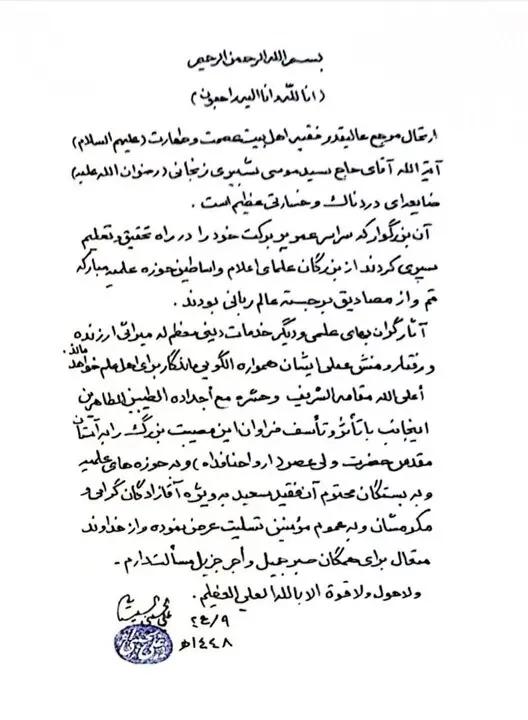 بسم الله الرحمن الرحیم
(انا لله وانا الیه راجعون)
ارتحال مرجع عالیقدر فقیه اهل بیت عصمت و طهارت (علیهم السلام)
آیة الله آقای حاج سید موسی شبیری زنجانی (رضوان الله علیه)
ضایعه‌ای دردناک و خسارتی عظیم است .
آن بزرگوار که سراسر عمر پر برکت خود را در راه تحقیق و تعلیم
سپری کردند از بزرگان علمای اعلام و اساطین حوزه علمیه مبارکه
قم و از مصادیق برجسته عالم ربانی بودند .
آثار گران بهای علمی و دیگر خدمات دینی معظم له میراثی ارزنده
و رفتار و منش عملی ایشان همواره الگویی ماندگار برای اهل علم خواهد ماند.
أعلی الله مقامه الشریف وحشره مع أجداده الطیبین الطاهرین
اینجانب با تأثر و تأسف فراوان این مصیبت بزرگ را به آستان
مقدس حضرت ولی عصر (ارواحنا فداه) و به حوزه های علمیه
و به بستگان محترم آن فقید سعید به ویژه آقازادگان گرامی و
مکرمشان و به عموم مؤمنین تسلیت عرض نموده و از خداوند
متعال برای همگان صبر جمیل و أجر جزیل مسألت دارم .
ولا حول ولا قوة الا بالله العلی العظیم .
علی الحسینی السیستانی
٢٤/٩
١٤٤٨هـ